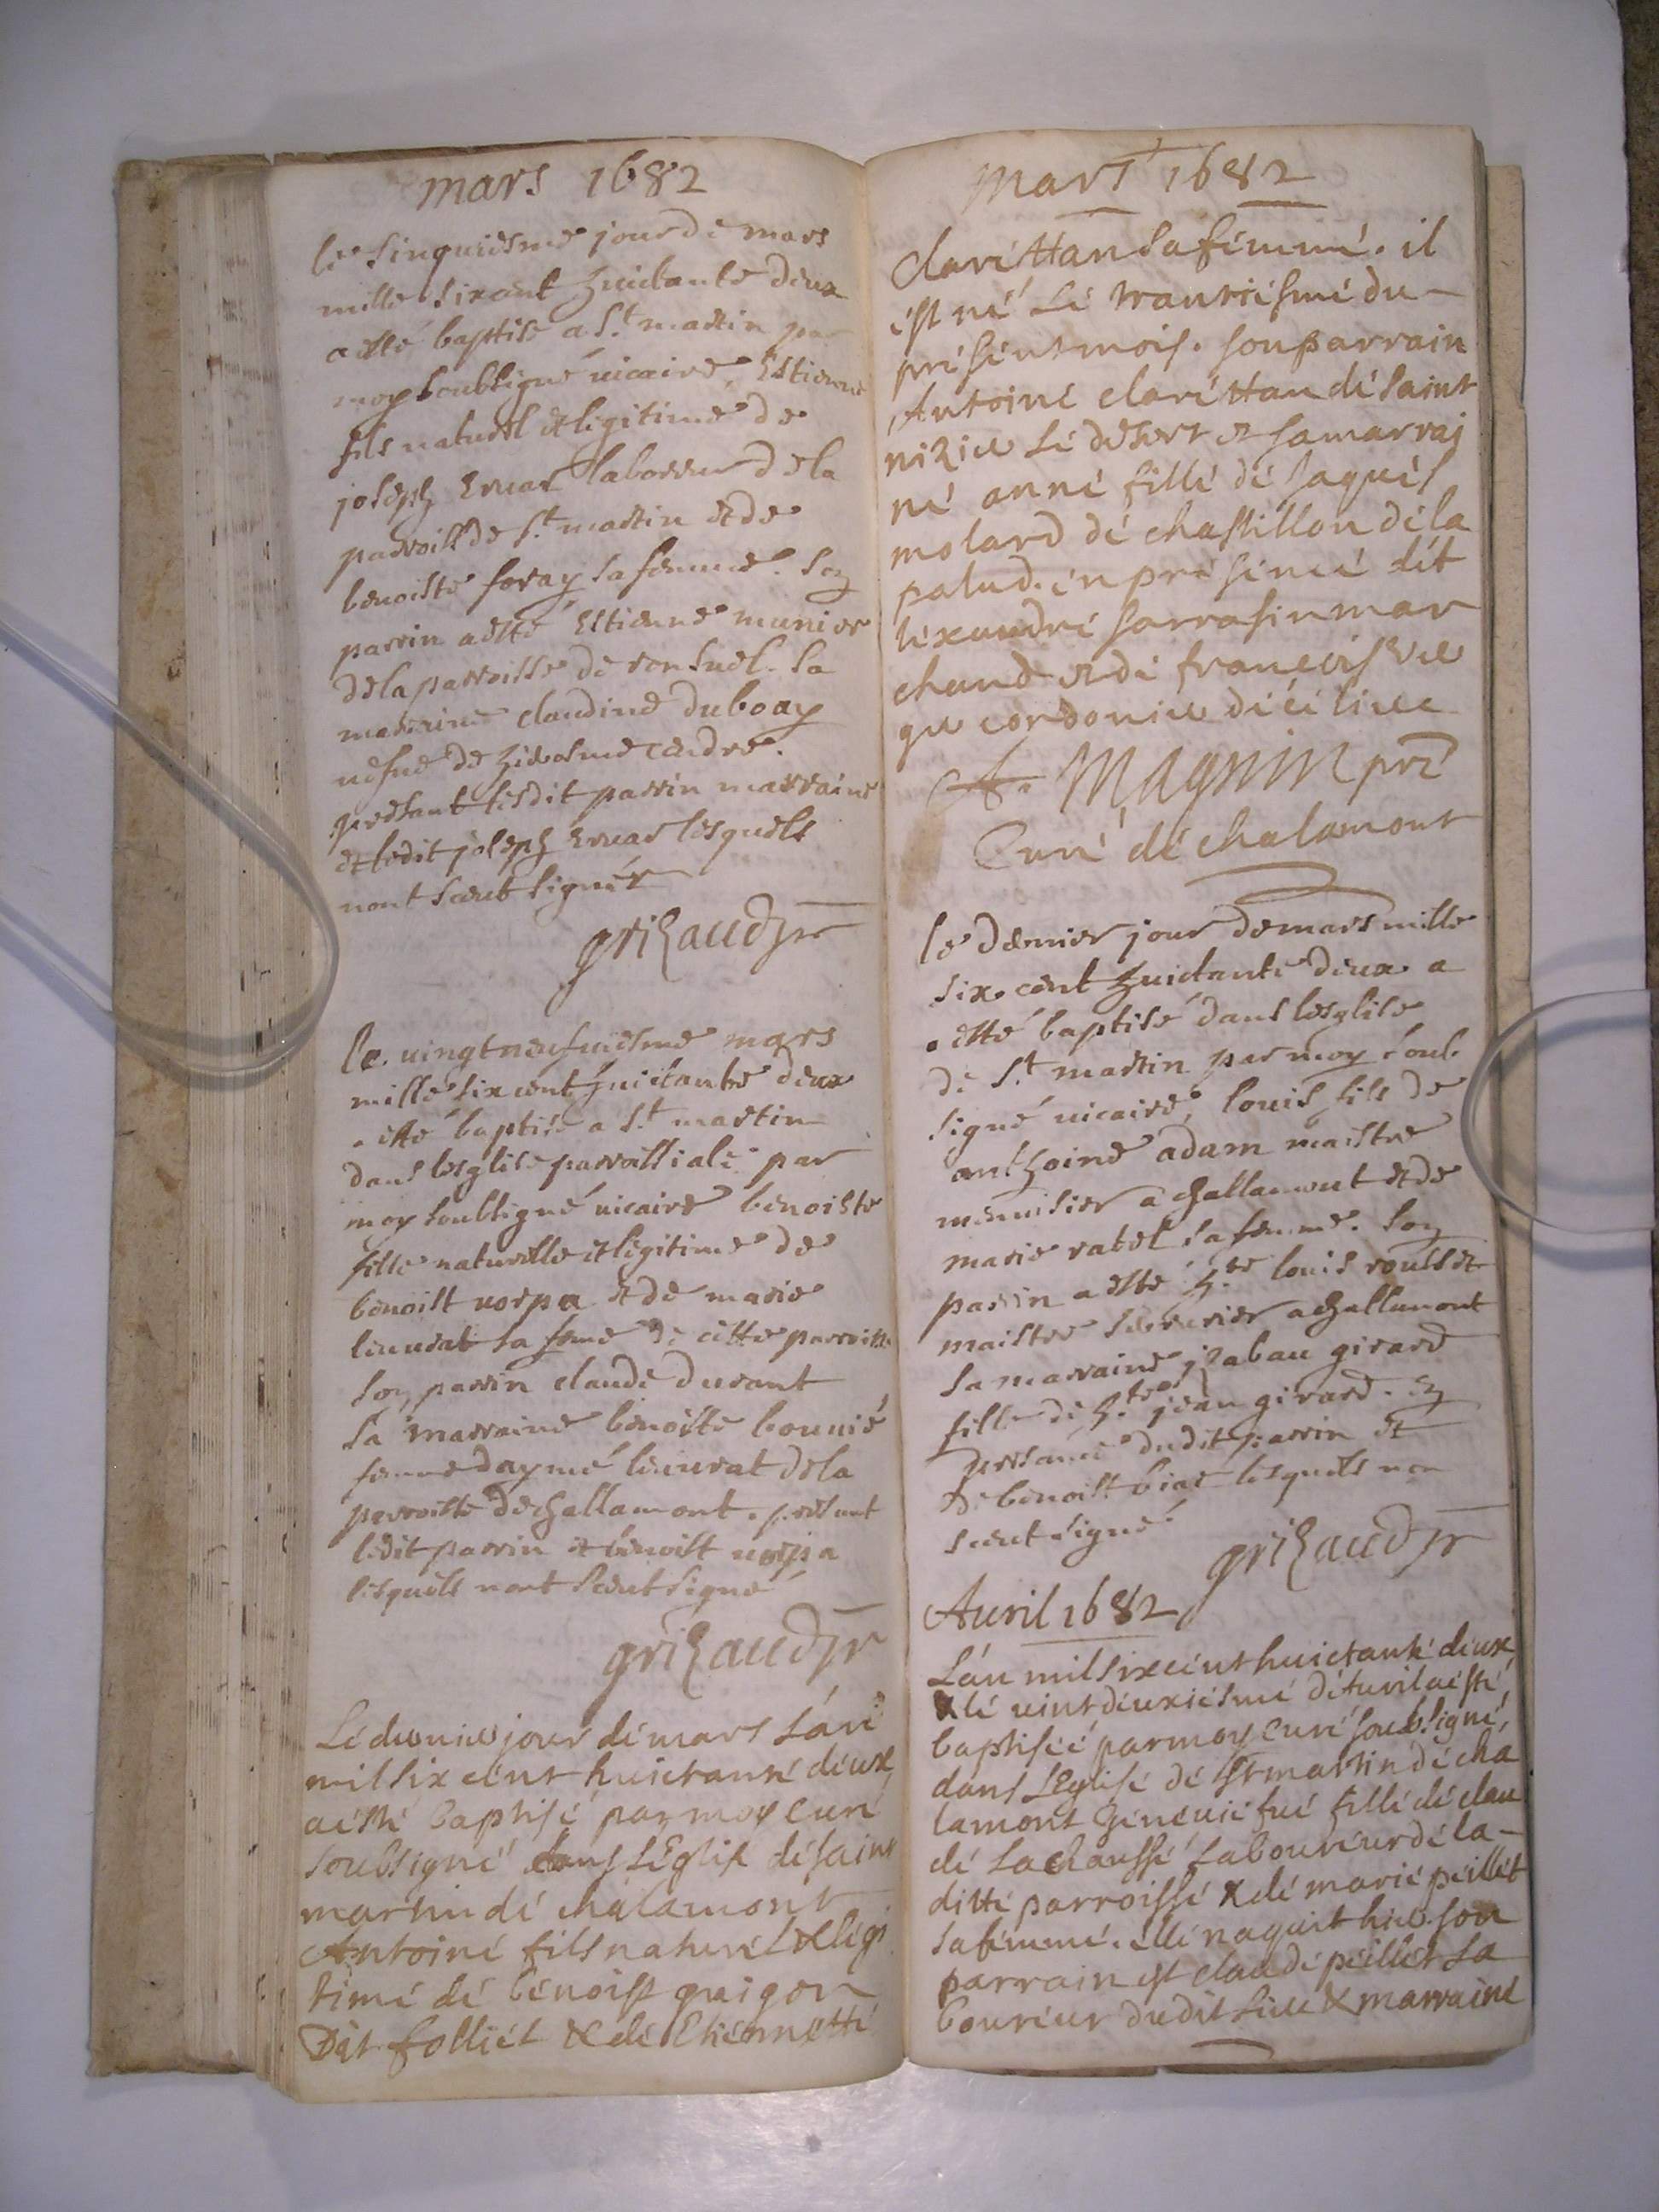 mars 1682
le sinquiesme jour de mars
mille sixcent huictante deux
a esté baptise a S.t martin par
moy soubsigné uicaire, Estienne
fils naturel et legitime de
joseph laboureur de la
parroisse de S.t martin et de
benoiste foray sa femme. son
parrin a esté Estienne munier
de la parroisse de ronsuel. la
marrine claudine duboay
uesue de cendre.
presant lesdit parrin marraine
et ledit joseph lesquels
nont sceut signér
grizaud ptr
le uingt neufuiesme mars
mille six cent huictante deux
a esté baptisé a S.t martin
dans lesglise parroissiale par
moy soubsigné uicaire benoiste
fille naturelle et legitime de
benoist uorpa et de marie
lieuurat sa feme de cette parroisse
son parrin claude durant
sa marraine benoiste bounié
femme daymé lieuurat de la
parroisse de challamont. presant
ledit parrin et benoist uorpa
lesquels nont sceut signé
grizaud ptr
Le dernier jour de mars l'an
mil six cent huictante deux,
a esté baptisé par moy curé
soubsigné dans l'Eglise de saint
martin de chalamont
Antoine fils naturel & legi
time de benoist guigon
Dit folliet & de Etiennette
Mars 1682
Clarettan sa femme. il
est né le trantiesme du-
present mois. son parrain
Antoine clarettan de saint
nizier le desert et sa marrai
ne anne fille de Jaques
molard de chastillon de la
palud. en presence d'A
lexandre sarrasin mar
chand et de francois
que cordonier de ce lieu
A. Magnin prê
Curé de chalamont
le dernier jour de mars mille
six. cent huictante deux a
esté baptisé dans lesglise
de S.t martin par moy soub
signé uicaire, louis fils de
anthoine adam maistre
menuisier a challamont et de
marie ratel sa femme. son
parrin a esté h.te louis rousset
maistre serrurier a challamont
sa marraine jzabau girard
fille de h.te jean girard. en
presance dudit parrin et
de benoist biae lesquels non
sceut signé
grizaud ptr
Auril 1682
L'an mil six cent huictante deux,
& le uint deuxiesme d'Auril a esté
baptiseé par moy curé soubsigné,
dans L'Eglise de st martin de cha
lamont Geneuiefue fille de clau
de Lachaussé laboureur de la-
ditte parroisse & de marie peillet
sa femme. elle naquit hier. son
parrain est claude peillet la
boureur dudit lieu & marraine